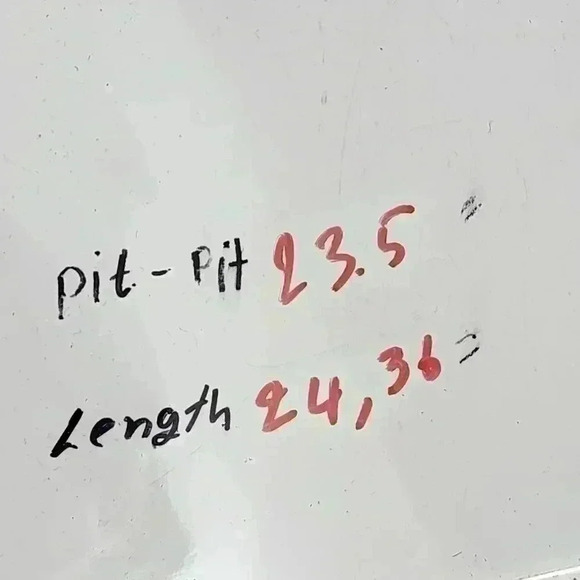 pit - Pit 23.5 "
Length 24,36 "